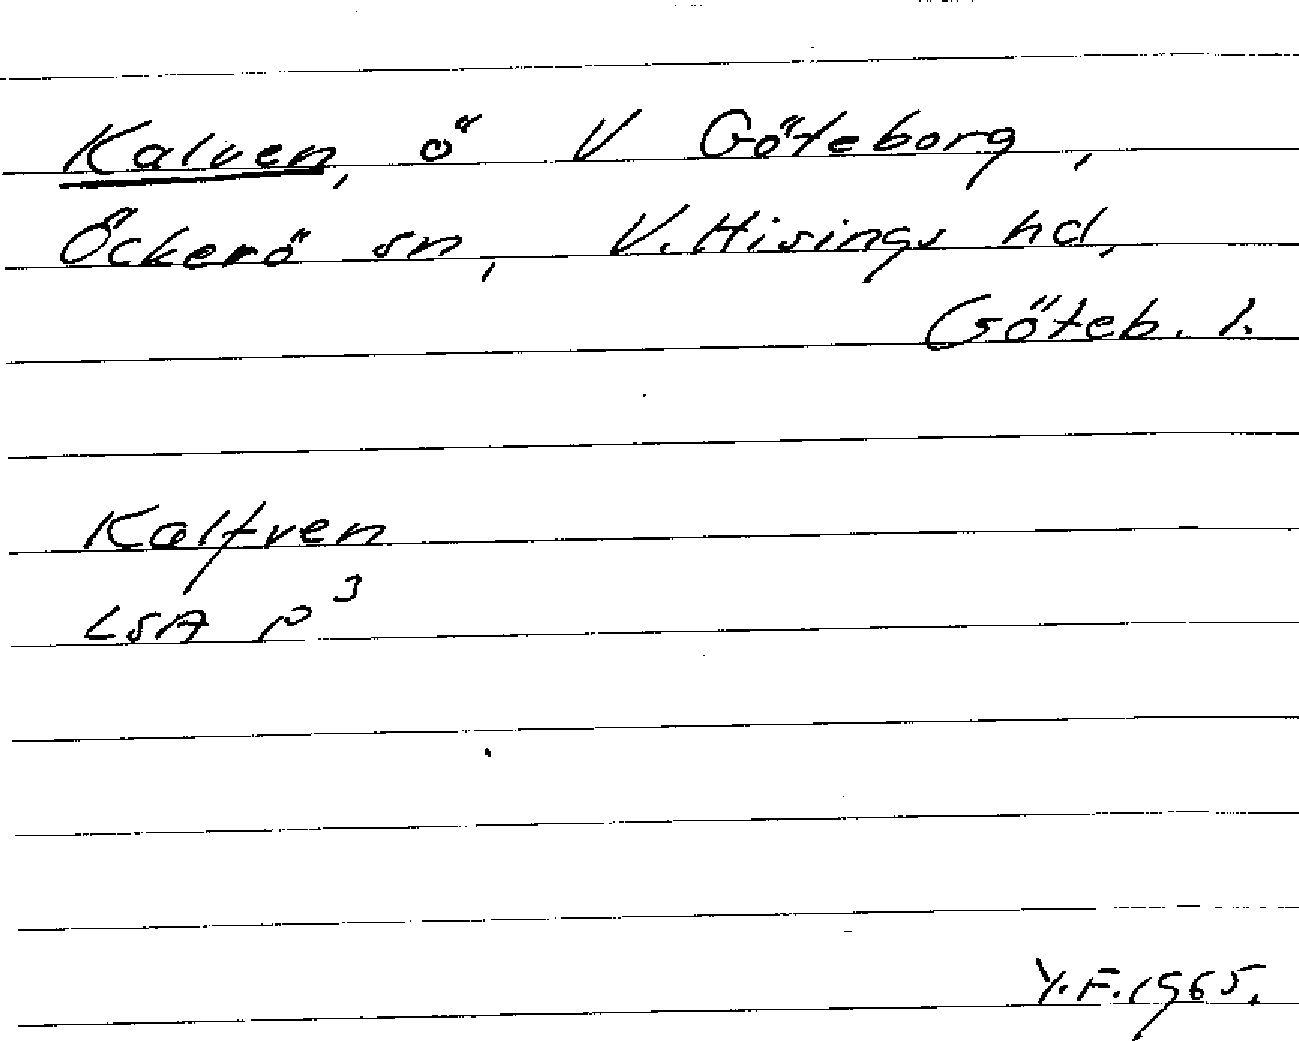 Kalven, ö V Göteborg,
Öckerö sn, V. Hisings hd,
Göteb. l.
Kalfven
LSA P³
Y.F. 1965.